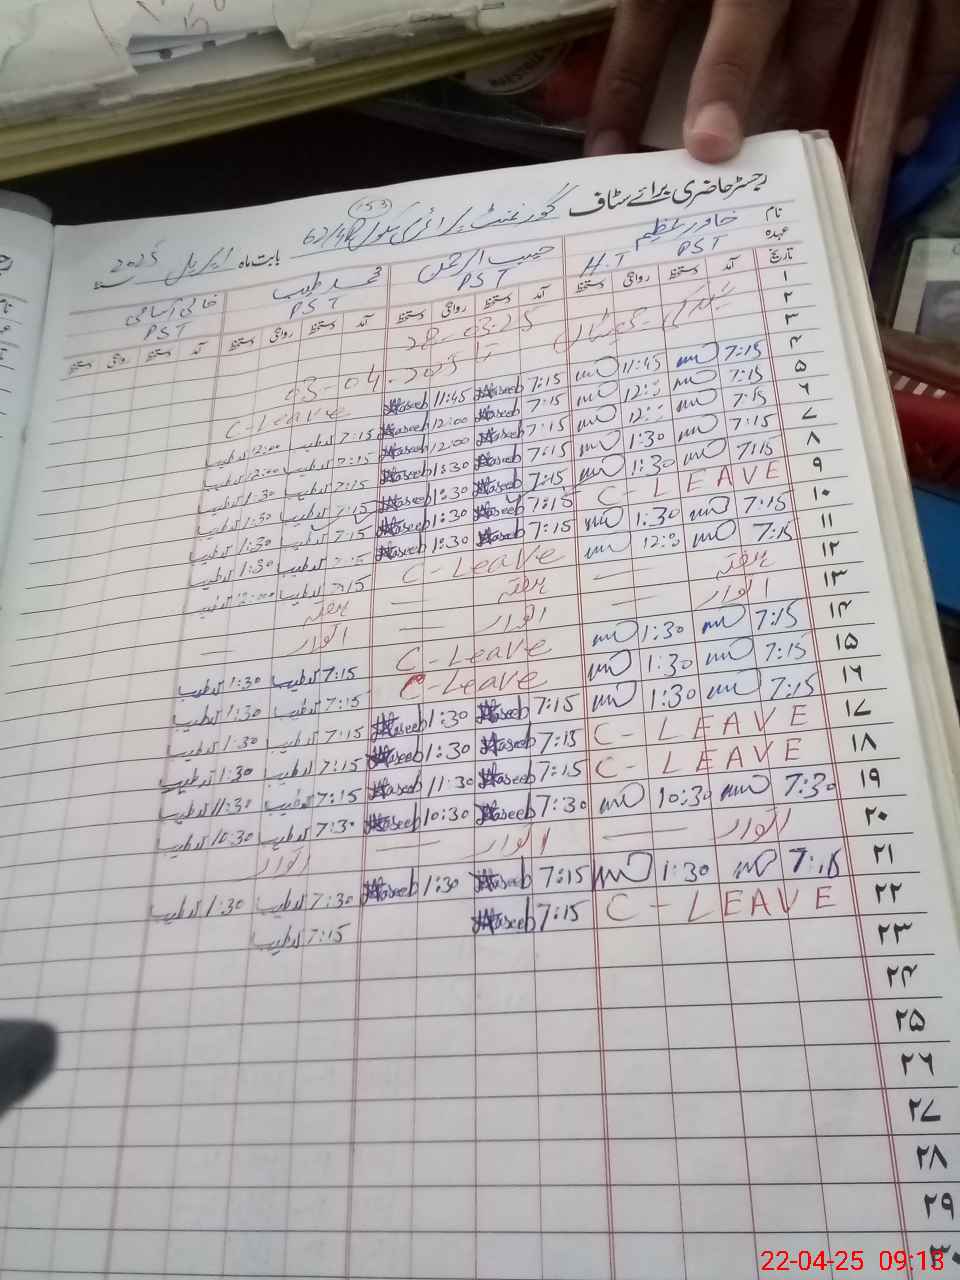 رجسٹر حاضری برائے سٹاف گورنمنٹ پرائمری سکول 62/4R بابت ماہ اپریل 2025
153
نام خاور عظیم حبیب الرحمن محمد طیب خالی آسامی
عہدہ PST H.T PST PST PST
تاریخ آمد دستخط روانگی دستخط آمد دستخط روانگی دستخط آمد دستخط روانگی دستخط آمد دستخط روانگی دستخط
۱
۲ 28-03-25 تا
۳ 03-04-2025
۴ 7:15 11:45 7:15 Haseeb 11:45 Haseeb C-Leave
۵ 7:15 7:15 Haseeb 12:00 Haseeb 7:15 طیب 12:00 طیب
۶ 7:15 7:15 Haseeb 12:00 Haseeb 7:15 طیب 12:00 طیب
۷ 7:15 1:30 7:15 Haseeb 1:30 Haseeb 7:15 طیب 1:30 طیب
۸ 7:15 1:30 7:15 Haseeb 1:30 Haseeb 7:15 طیب 1:30 طیب
۹ C-LEAVE 7:15 Haseeb 1:30 Haseeb 7:15 طیب 1:30 طیب
۱۰ 7:15 1:30 7:15 Haseeb 1:30 Haseeb طیب 1:30 طیب
۱۱ 7:15 C-Leave 7:15 طیب 12:00 طیب
۱۲ ہفتہ — ہفتہ — ہفتہ —
۱۳ اتوار — اتوار — اتوار
۱۴ 7:15 1:30 C-Leave 7:15 طیب 1:30 طیب
۱۵ 7:15 1:30 C-Leave 7:15 طیب 1:30 طیب
۱۶ 7:15 1:30 7:15 Haseeb 1:30 Haseeb 7:15 طیب 1:30 طیب
۱۷ C-LEAVE 7:15 Haseeb 1:30 Haseeb 7:15 طیب 1:30 طیب
۱۸ C-LEAVE 7:15 Haseeb 11:30 Haseeb 7:15 طیب 11:30 طیب
۱۹ 7:30 10:30 7:30 Haseeb 10:30 Haseeb 7:30 طیب 10:30 طیب
۲۰ اتوار — اتوار — اتوار
۲۱ 7:15 1:30 7:15 Haseeb 1:30 Haseeb 7:30 طیب 1:30 طیب
۲۲ C-LEAVE 7:15 Haseeb 7:15 طیب
۲۳
۲۴
۲۵
۲۶
۲۷
۲۸
۲۹
۳۰
22-04-25 09:13